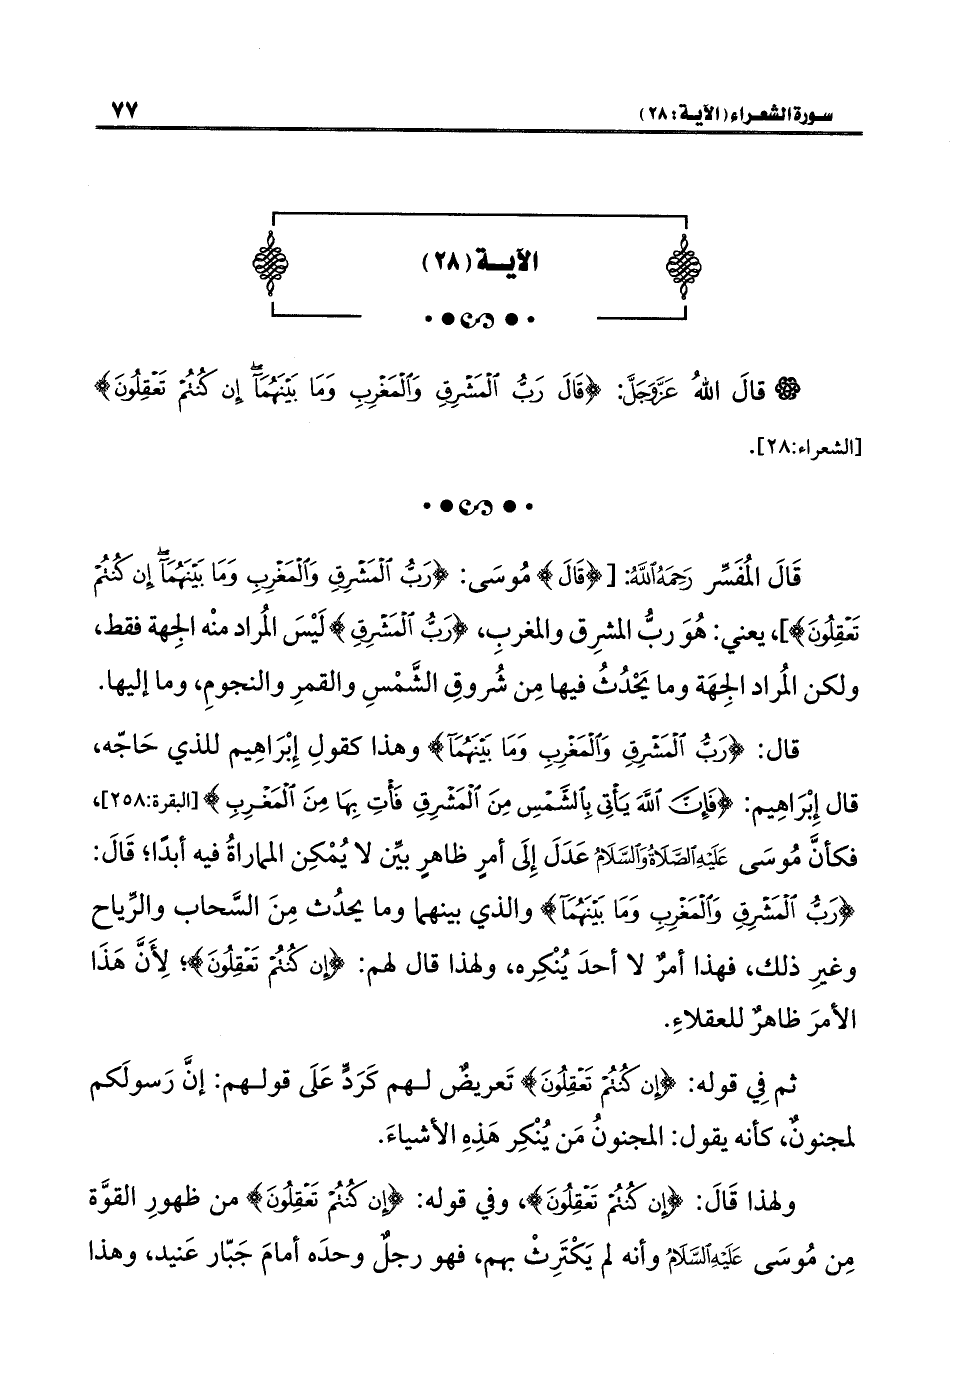 سورة الشعراء (الآية: ٢٨) ٧٧
الآية (٢٨)
قالَ اللهُ عَزَّوَجَلَّ: ﴿قَالَ رَبُّ الْمَشْرِقِ وَالْمَغْرِبِ وَمَا بَيْنَهُمَآ ۖ إِن كُنتُمْ تَعْقِلُونَ﴾
[الشعراء:٢٨].
قَالَ المُفَسِّر رَحِمَهُ اللَّهُ: [﴿قَالَ﴾ مُوسَى: ﴿رَبُّ الْمَشْرِقِ وَالْمَغْرِبِ وَمَا بَيْنَهُمَآ ۖ إِن كُنتُمْ
تَعْقِلُونَ﴾]، يعني: هُوَ ربُّ المشرِق والمغربِ، ﴿رَبُّ الْمَشْرِقِ﴾ لَيْسَ المُراد منْه الجِهة فقط،
ولكن المُراد الجِهَة وما يَحْدُثُ فيها مِن شُروقِ الشَّمْسِ والقمرِ والنجومِ، وما إليها.
قال: ﴿رَبُّ الْمَشْرِقِ وَالْمَغْرِبِ وَمَا بَيْنَهُمَآ﴾ وهذا كقولِ إِبْرَاهِيم للذي حَاجّه،
قال إِبْرَاهِيم: ﴿فَإِنَّ اللَّهَ يَأْتِي بِالشَّمْسِ مِنَ الْمَشْرِقِ فَأْتِ بِهَا مِنَ الْمَغْرِبِ﴾ [البقرة:٢٥٨]،
فكأنَّ مُوسَى عَلَيْهِ الصَّلَاةُ وَالسَّلَامُ عَدَلَ إِلَى أمرٍ ظاهرٍ بيِّن لا يُمْكِن المماراةُ فيه أبدًا؛ قَالَ:
﴿رَبُّ الْمَشْرِقِ وَالْمَغْرِبِ وَمَا بَيْنَهُمَآ﴾ والذي بينهما وما يحدُث مِنَ السَّحاب والرِّياح
وغيرِ ذلك، فهذا أمرٌ لا أحدَ يُنْكِره، ولهذا قال لهم: ﴿إِن كُنتُمْ تَعْقِلُونَ﴾؛ لِأَنَّ هَذَا
الأمرَ ظاهرٌ للعقلاءِ.
ثم فِي قوله: ﴿إِن كُنتُمْ تَعْقِلُونَ﴾ تَعريضٌ لـهم كَرَدٍّ عَلَى قولـهم: إنَّ رَسولَكم
لمجنونٌ، كأنه يقول: المجنونُ مَن يُنْكِر هَذِهِ الأشياءَ.
ولهذا قَالَ: ﴿إِن كُنتُمْ تَعْقِلُونَ﴾، وفي قوله: ﴿إِن كُنتُمْ تَعْقِلُونَ﴾ من ظهورِ القوَّة
مِن مُوسَى عَلَيْهِ السَّلَامُ وأنه لم يَكْتَرِثْ بهم، فهو رجلٌ وحدَه أمامَ جَبّار عَنيد، وهذا